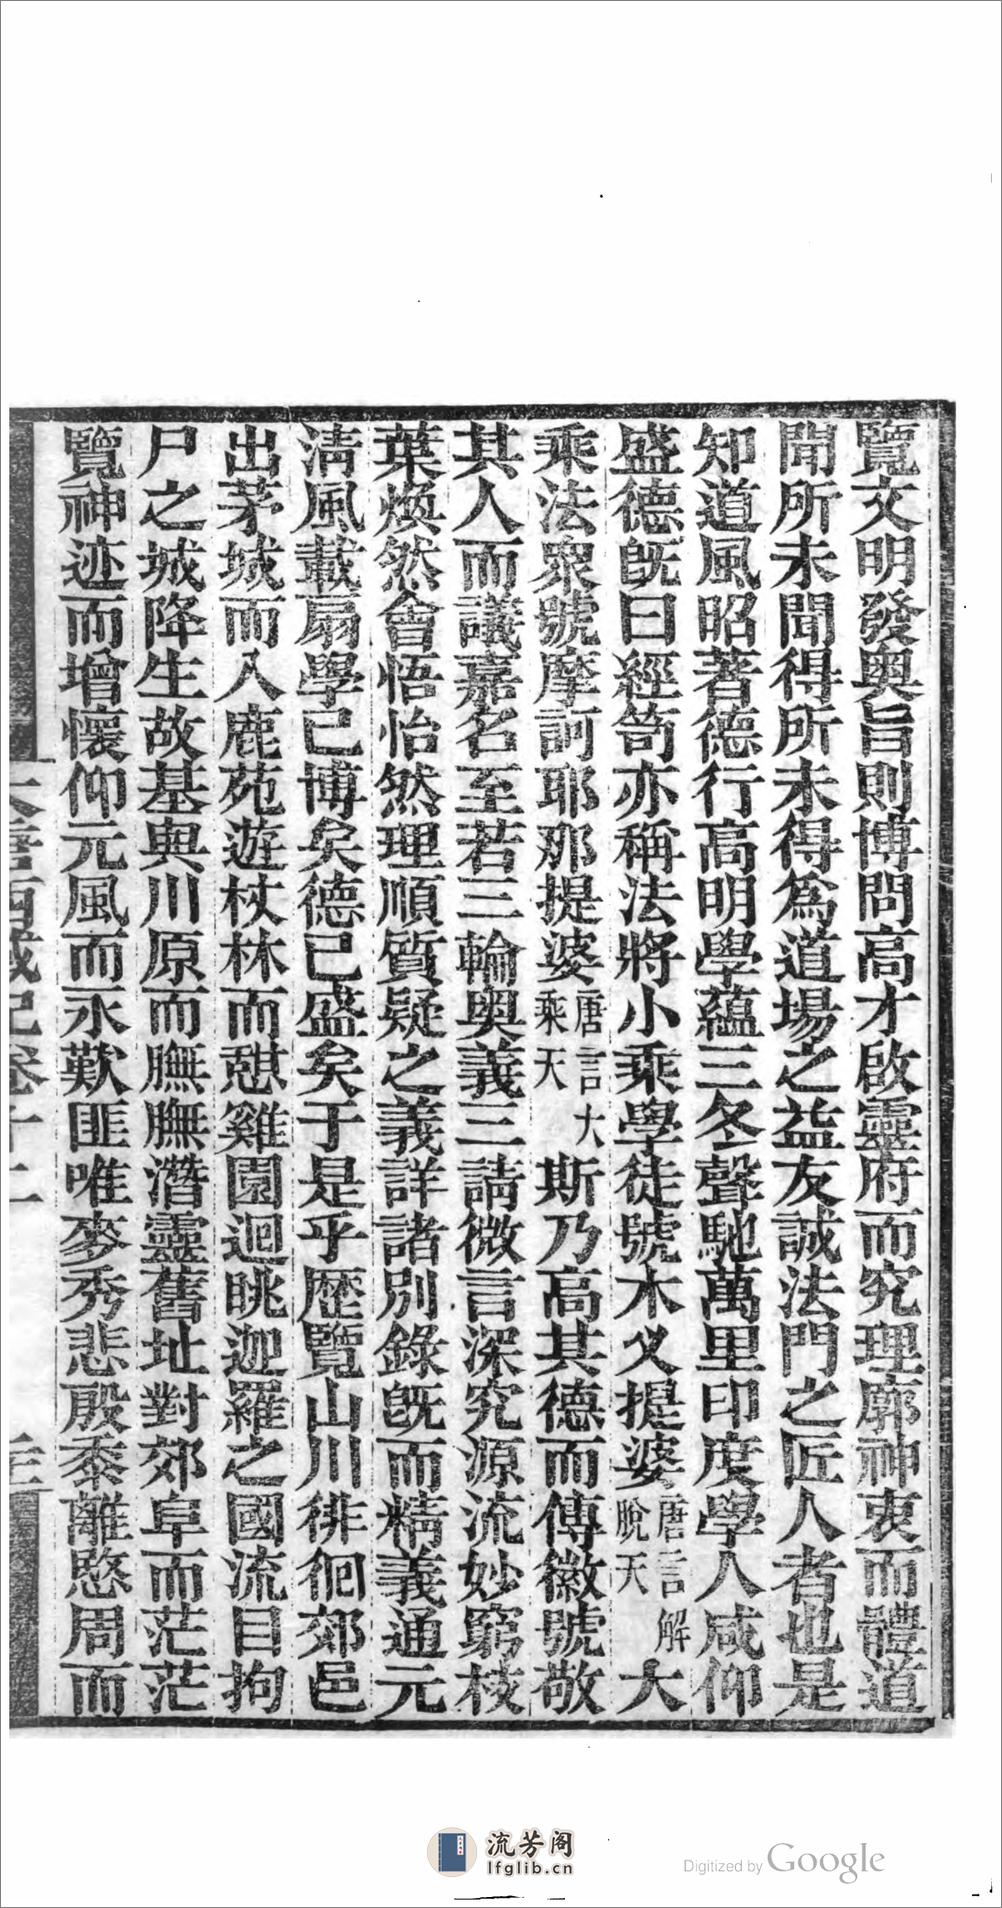 覽文明發奧旨則博問高才啟靈府而究理廓神衷而體道
聞所未聞得所未得為道場之益友誠法門之匠人者也是
知道風昭著德行高明學蘊三冬聲馳萬里印度學人咸仰
盛德旣曰經笥亦稱法將小乘學徒號木叉提婆唐言解脫天大
乘法眾號摩訶耶那提婆唐言大乘天斯乃高其德而傳徽號敬
其人而議嘉名至若三輪奧義三請微言深究源流妙窮枝
葉煥然會悟怡然理順質疑之義詳諸別錄旣而精義通元
淸風載扇學已博矣德已盛矣于是乎歷覽山川徘徊郊邑
出茅城而入鹿苑遊杖林而憩雞園迴眺迦羅之國流目拘
尸之城降生故基與川原而膴膴潛靈舊址對郊阜而茫茫
覽神迹而增懷仰元風而永歎匪唯麥秀悲殷黍離愍周而
大唐西域記卷十二
流芳阁
lfglib.cn
Digitized by Google